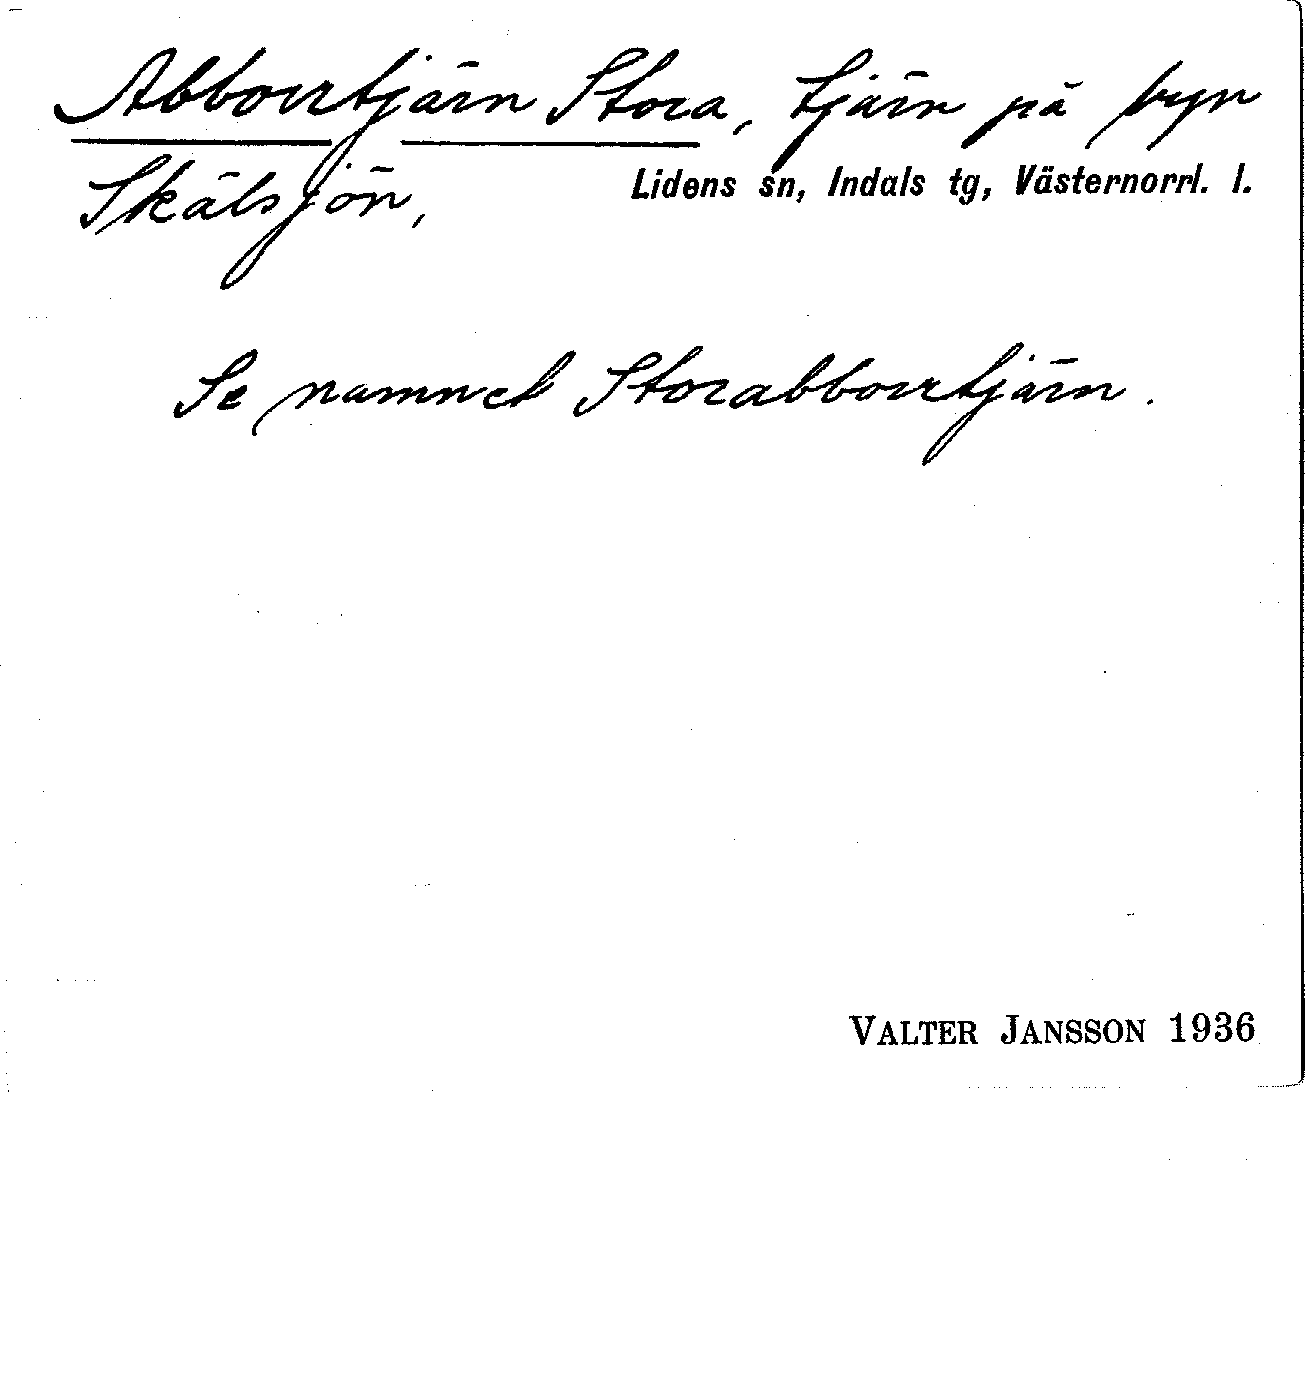 Abborrtjärn Stora, tjärn på byn
Skälsjön,
Lidens sn, Indals tg, Västernorrl. l.
Se namnet Storabborrtjärn.
VALTER JANSSON 1936